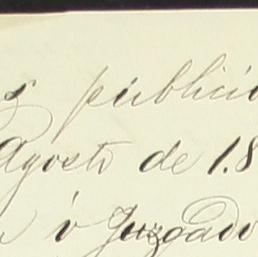 s publici
Agosto de 1.8
ó Juzgado